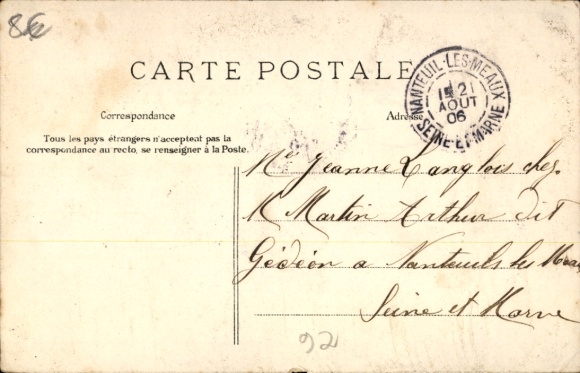 8€
CARTE POSTALE
NANTEUIL-LES-MEAUX
21
AOUT
06
SEINE-ET-MARNE
Correspondance
Adresse
Tous les pays étrangers n'acceptent pas la
correspondance au recto, se renseigner à la Poste.
Mle Jeanne Langlois chez
M Martin Arthur dit
Gédéon a Nanteuils les Meaux
Seine et Marne
92